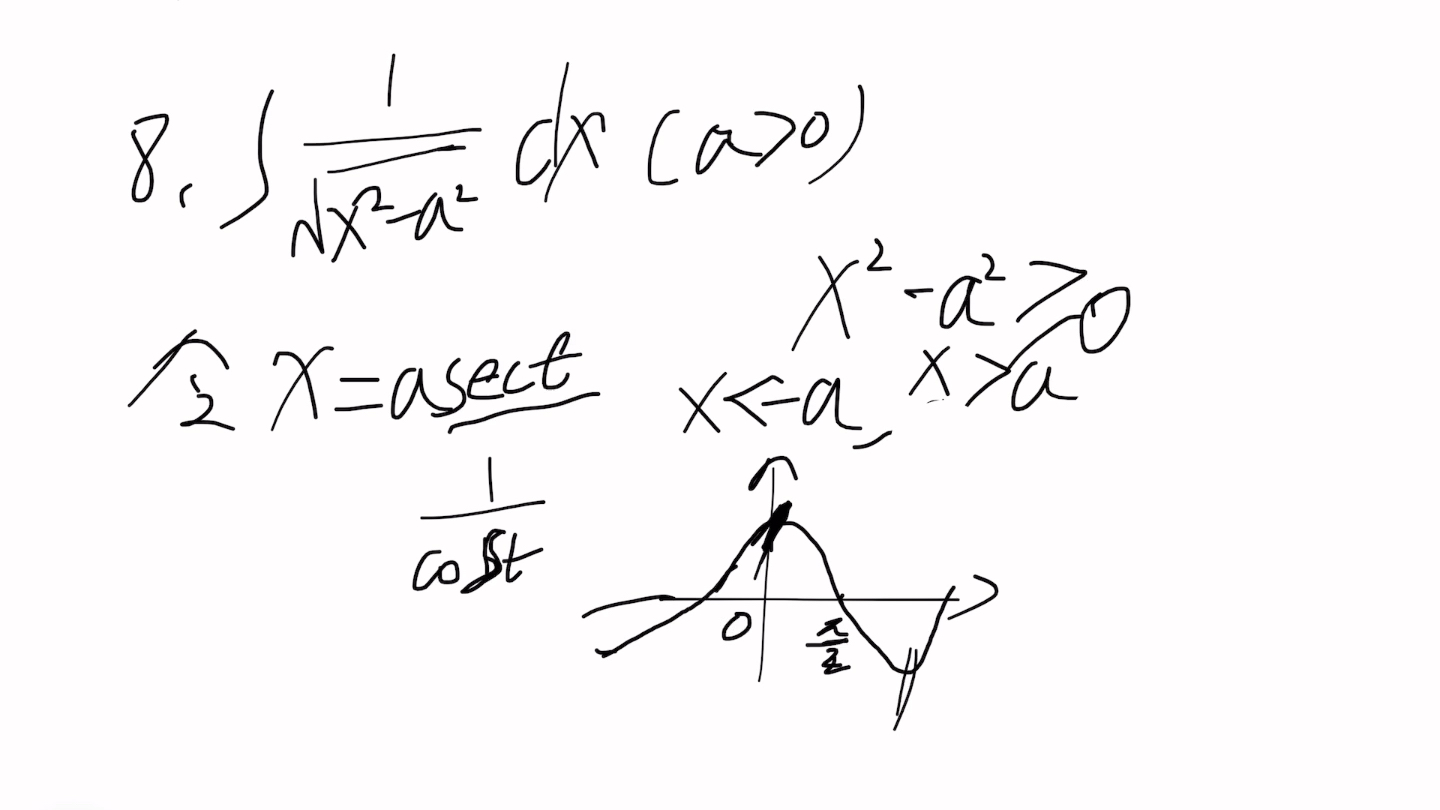 8. ∫ 1/√(x²-a²) dx (a>0)
x²-a²≥0
令 x=asect
x<-a, x>a
1/cost
0 π/2